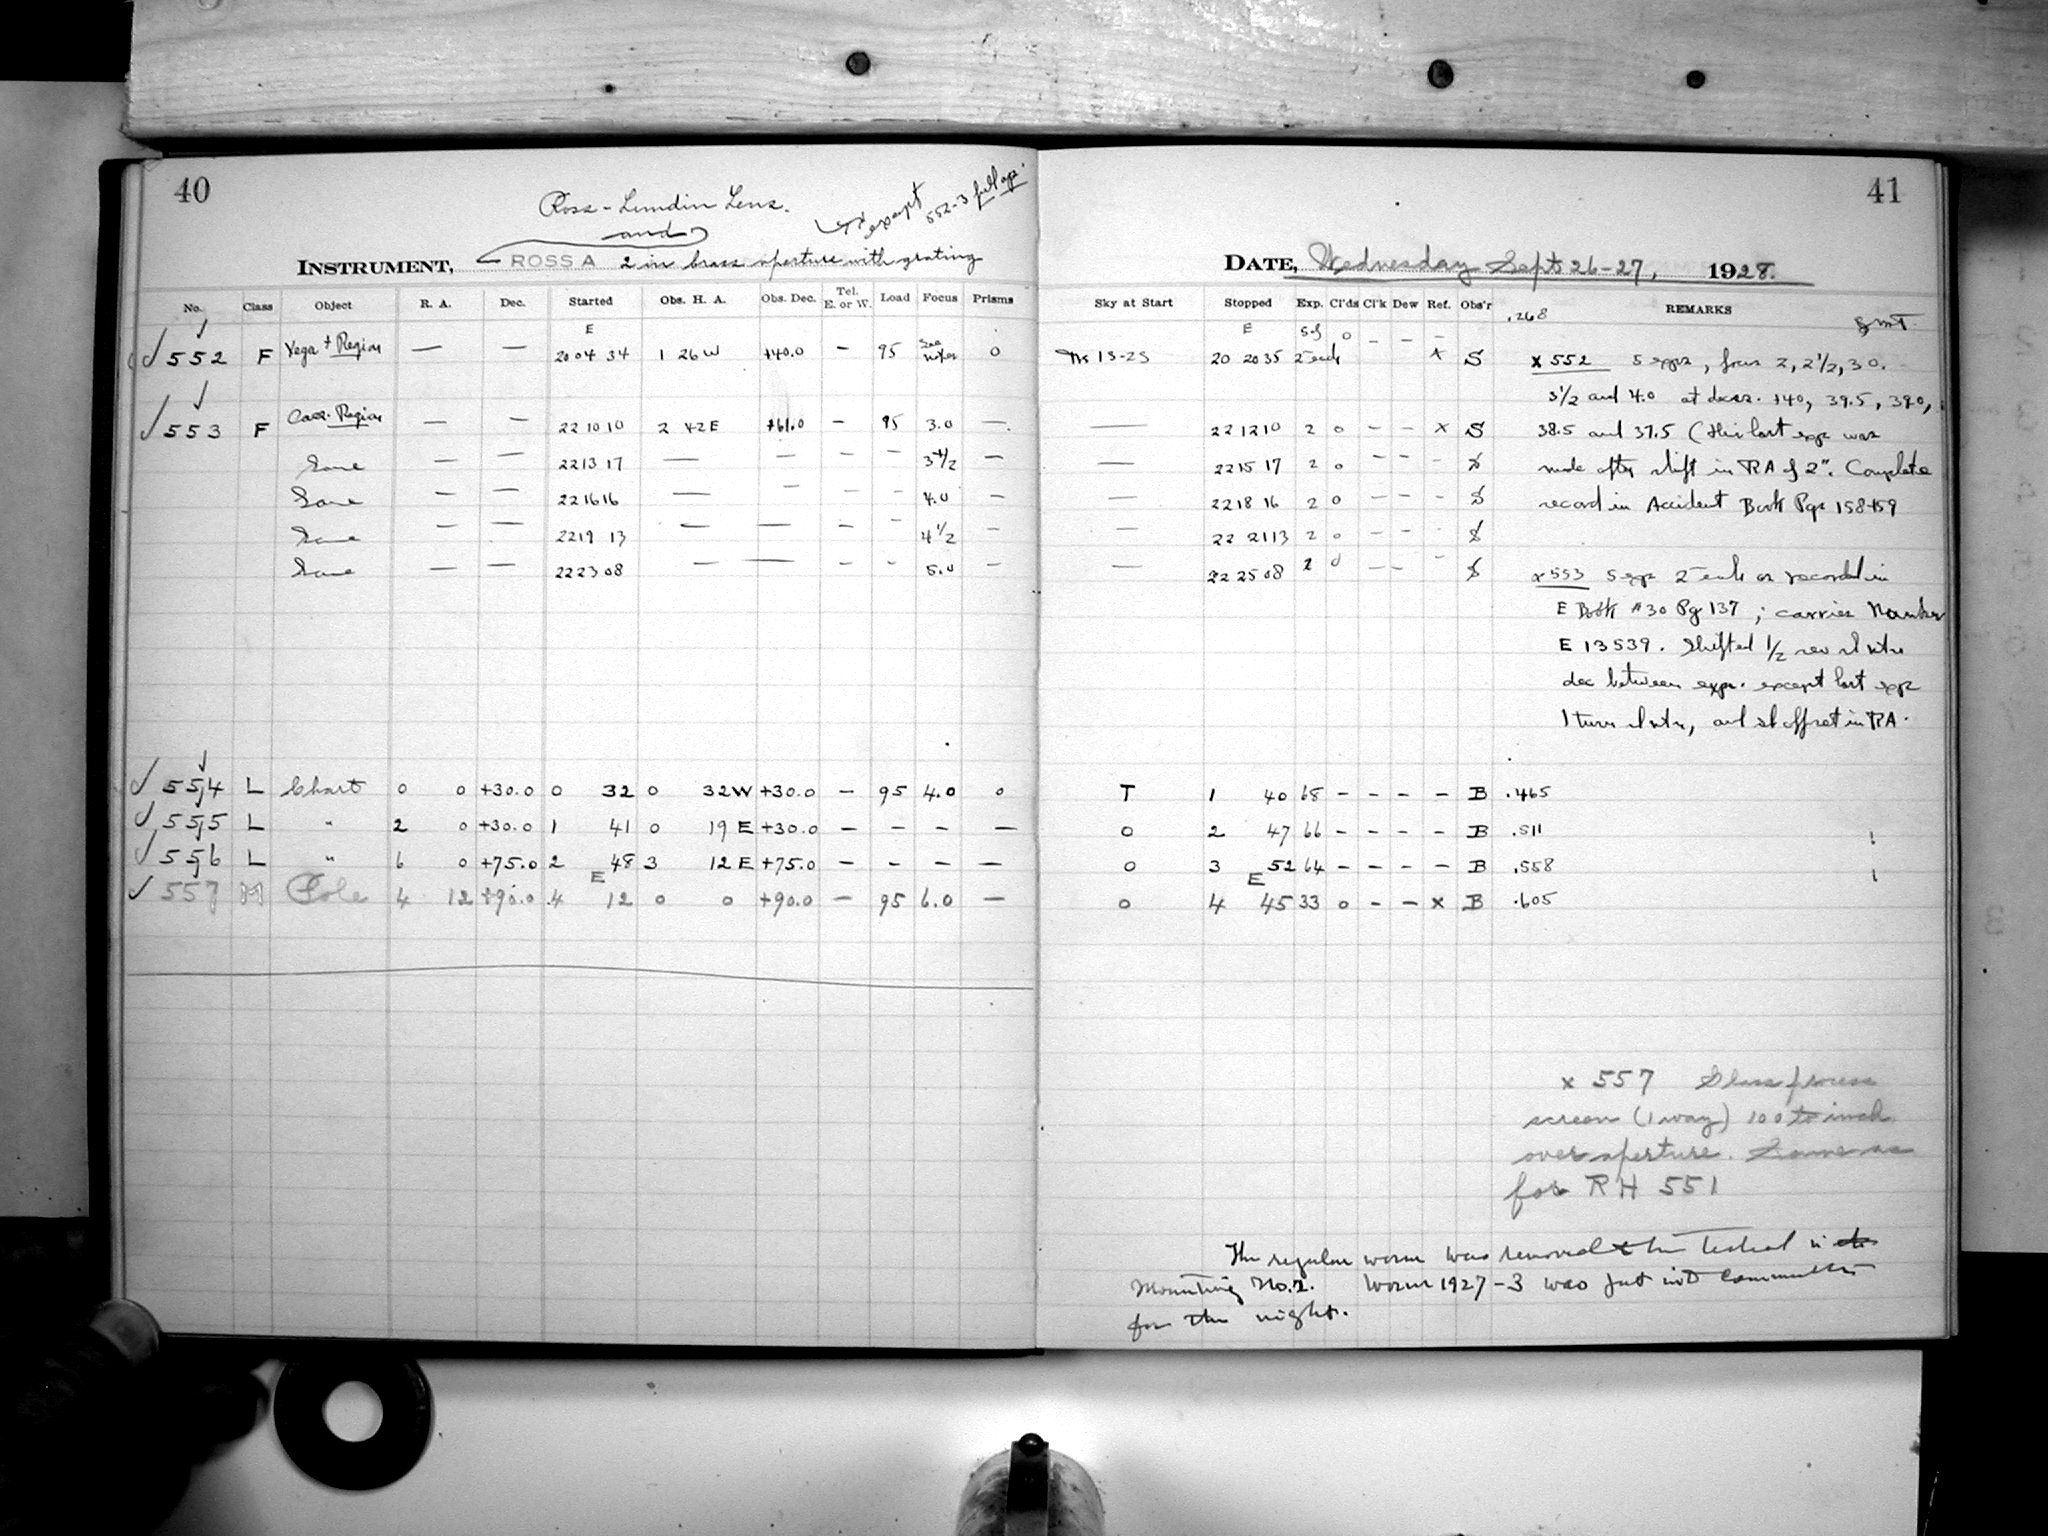 40
Ross-Lundin Lens.
and
except
552-3 full ap.
INSTRUMENT, ROSS A 2 in brass aperture with grating
No. Class Object R. A. Dec. Started Obs. H. A. Obs. Dec. Tel. E. or W. Load Focus Prisms
E
552 F Vega + Region — — 20 04 34 1 26 W +40.0 — 95 See notes 0
553 F Cass. Region — — 22 10 10 2 42 E +61.0 — 95 3.0 —
Same — — 22 13 17 — — — — 3 1/2 —
Same — — 22 16 16 — — — — 4.0 —
Same — — 22 19 13 — — — — 4 1/2 —
Same — — 22 23 08 — — — — 5.0 —
554 L Chart 0 0 +30.0 0 32 0 32 W +30.0 — 95 4.0 0
555 L " 2 0 +30.0 1 41 0 19 E +30.0 — — — —
556 L " 6 0 +75.0 2 48 3 12 E +75.0 — — — —
557 M Pole 4 12 +90.0 E 4 12 0 0 +90.0 — 95 6.0 —
41
DATE, Wednesday Sept 26-27, 1928.
Sky at Start Stopped Exp. Cl'ds Cl'k Dew Ref. Obs'r REMARKS
.268 GMT
E 5-f 0 — — —
13-25 20 20 35 2 each x S x 552 5 exps, focus 2, 2 1/2, 3.0.
3 1/2 and 4.0 at decs. +40, 39.5, 39.0,
— 22 12 10 2 0 — — x S 38.5 and 37.5 (this last exp was
— 22 15 17 2 0 — — - S made after shift in RA of 2". Complete
— 22 18 16 2 0 — — - S record in Accident Book Pgs 158+59
— 22 21 13 2 0 — — S
— 22 25 08 2 0 — — - S x 553 5 exps 2 each as recorded in
E Book #30 Pg 137 ; carries Number
E 13539. Shifted 1/2 rev
dec between exps. except last exp
1 turn and offset in RA.
T 1 40 68 - - - - B .465
0 2 47 66 - - - - B .511
0 3 52 64 - - - - B .558
0 E 4 45 33 0 - - x B .605
x 557 Glass process
screen (1 way) 100 to inch
over aperture. Same as
for RH 551
The regular worm was removed tested in
Mounting No. 2. Worm 1927-3 was put into commission
for the night.